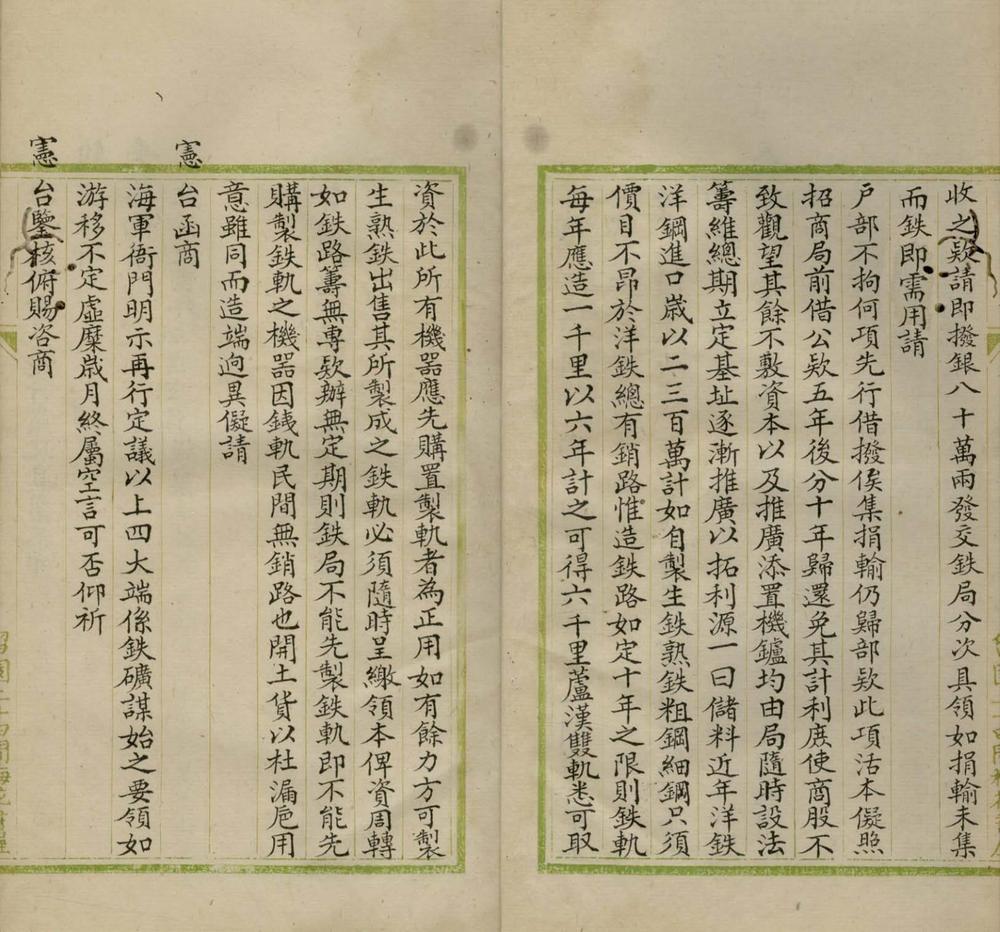 收之欵請即撥銀八十萬兩發交鉄局分次具領如捐輸未集
而鉄即需用請
戶部不拘何項先行借撥俟集捐輸仍歸部欵此項活本儗照
招商局前借公欵五年後分十年歸還免其計利庶使商股不
致觀望其餘不敷資本以及推廣添置機鑪均由局隨時設法
籌維總期立定基址逐漸推廣以拓利源一曰儲料近年洋鉄
洋鋼進口歲以二三百萬計如自製生鉄熟鉄粗鋼細鋼只須
價目不昂於洋鉄總有銷路惟造鉄路如定十年之限則鉄軌
每年應造一千里以六年計之可得六千里蘆漢雙軌悉可取
資於此所有機器應先購置製軌者為正用如有餘力方可製
生熟鉄出售其所製成之鉄軌必須隨時呈繳領本俾資周轉
如鉄路籌無專欵辦無定期則鉄局不能先製鉄軌即不能先
購製鉄軌之機器因銕軌民間無銷路也開土貨以杜漏巵用
意雖同而造端逈異儗請
憲台函商
海軍衙門明示再行定議以上四大端係鉄礦謀始之要領如
游移不定虛糜歲月終屬空言可否仰祈
憲台鑒核俯賜咨商